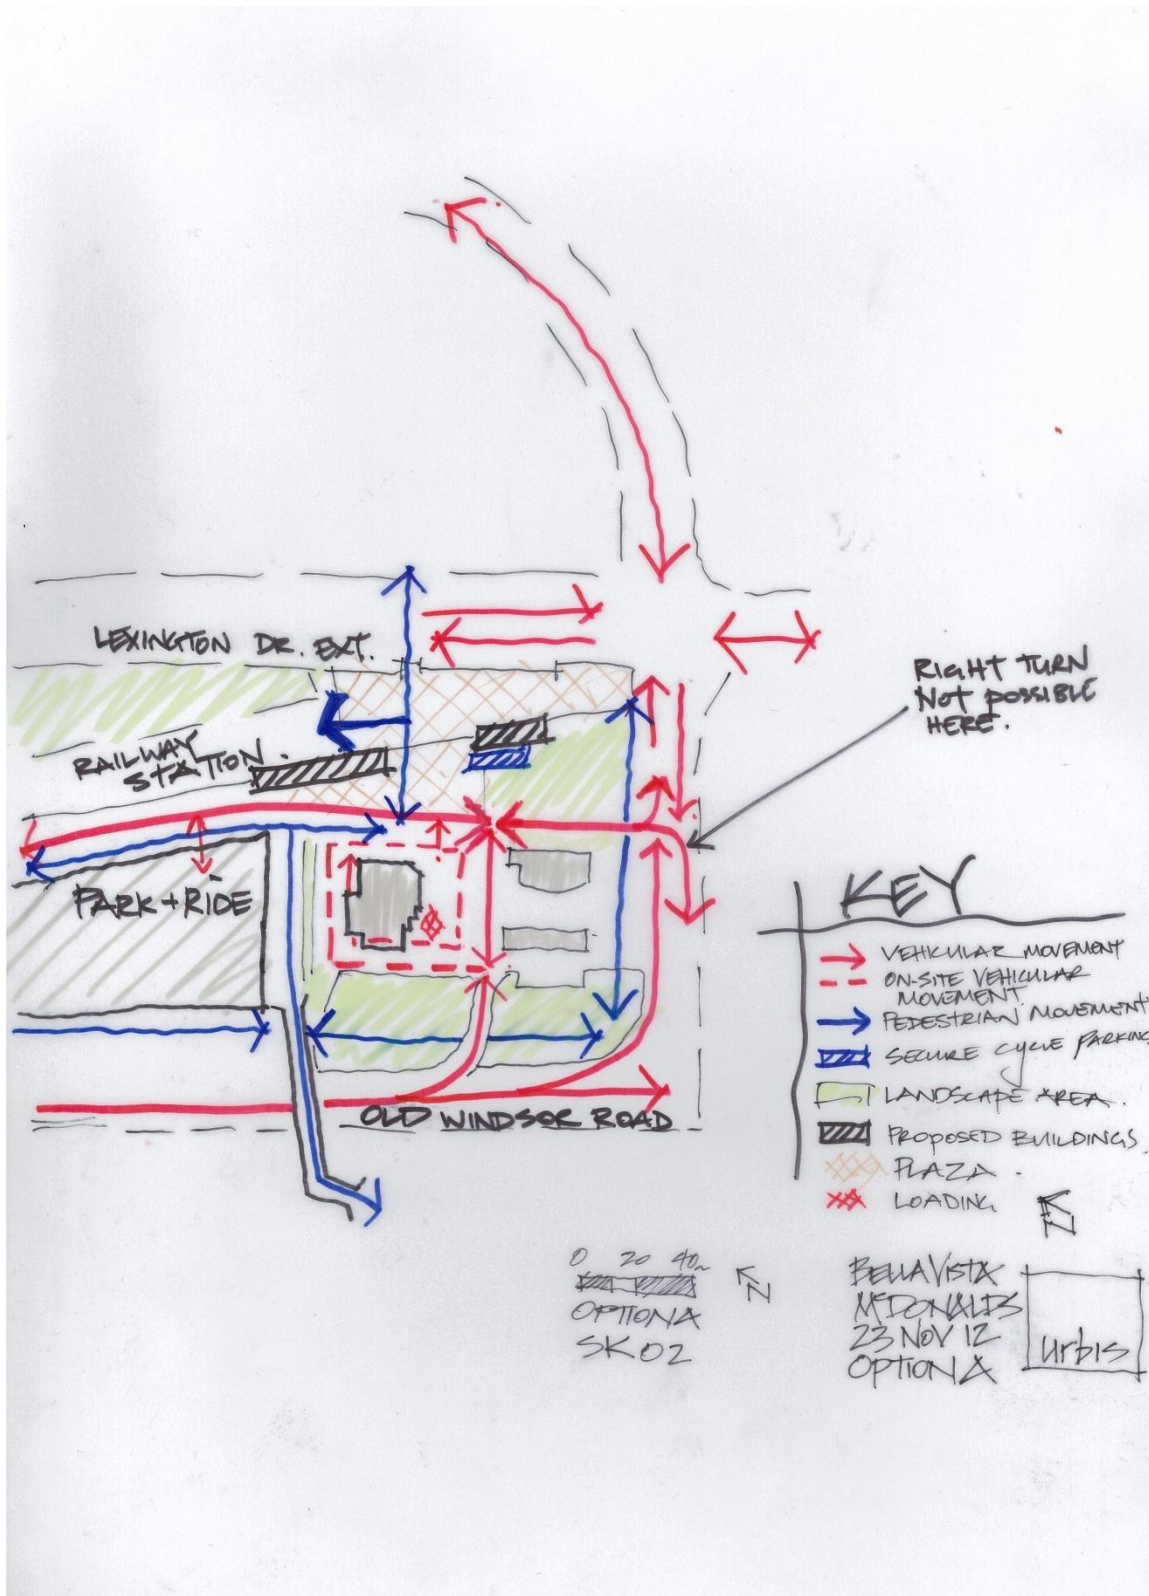 LEXINGTON DR. EXT.
RIGHT TURN
NOT POSSIBLE
HERE.
RAILWAY
STATION.
PARK + RIDE
KEY
VEHICULAR MOVEMENT
ON-SITE VEHICULAR
MOVEMENT
PEDESTRIAN MOVEMENT
SECURE CYCLE PARKING
LANDSCAPE AREA.
PROPOSED BUILDINGS.
PLAZA.
LOADING
OLD WINDSOR ROAD
N
0 20 40m
N
OPTION A
SK02
BELLA VISTA
McDONALDS
23 NOV 12
OPTION A
urbis